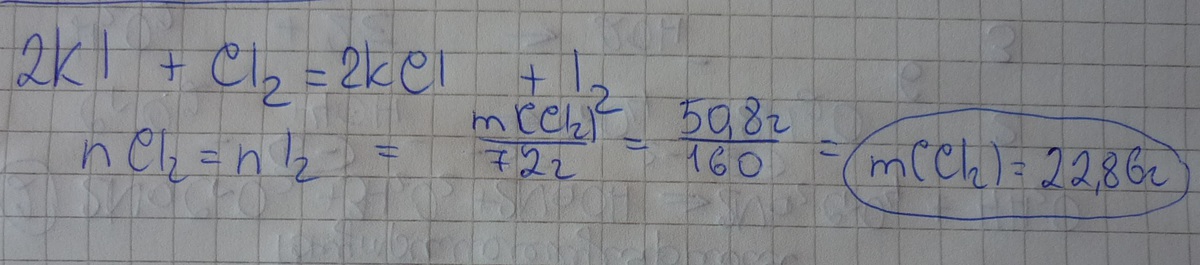 2KI + Cl₂ = 2KCl + I₂
nCl₂ = nI₂ = m(Cl₂)/72г = 50,8г/160 = m(Cl₂) = 22,86г